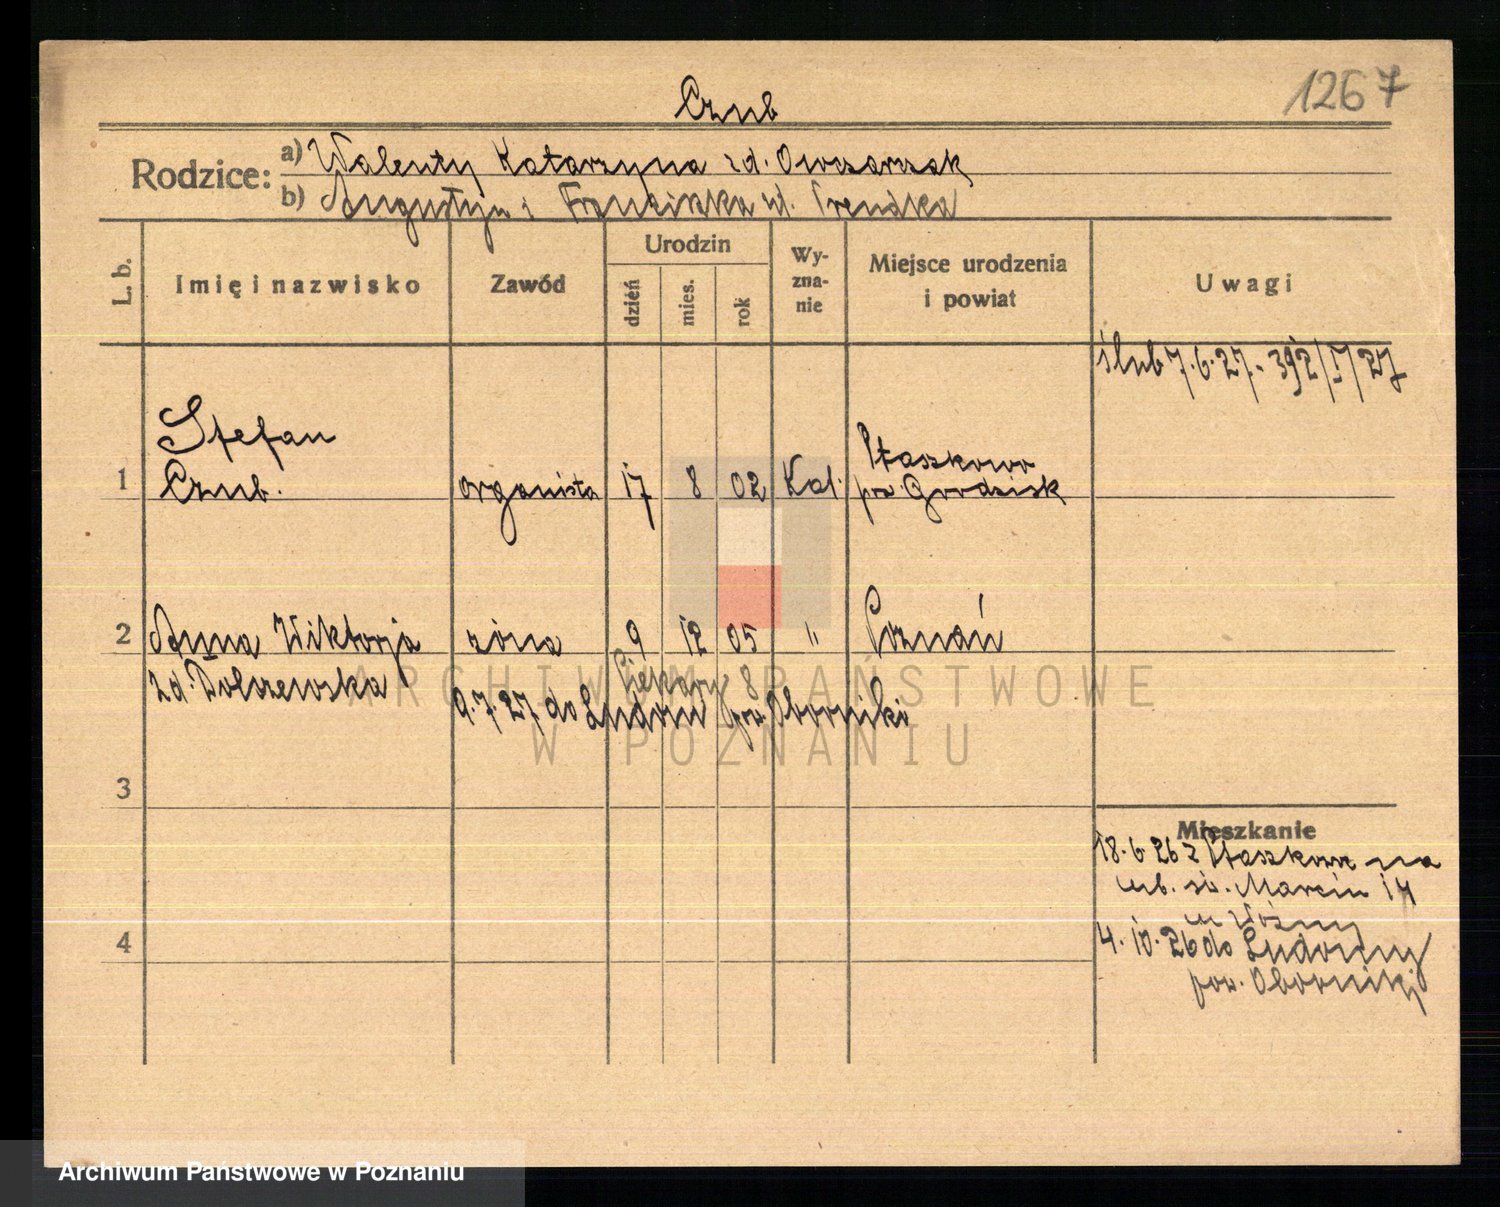 1267
Czub
Rodzice: a) Walenty Katarzyna zd. Owczarzak
b) Augustyn i Franciszka zd. Trendka
L. b.
Imię i nazwisko
Zawód
Urodzin
dzień
mies.
rok
Wy-
zna-
nie
Miejsce urodzenia
i powiat
Uwagi
ślub 7.6.27.- 392/I/27
1
Stefan
Czub.
organista
17
8
02
Kat.
Ptaszkowo
pow. Grodzisk
2
Anna Wiktorja
zd. Dolczewska
żona
9
12
05
"
Poznań
Piekary 8
9.7.27 do Ludom pow. Oborniki
3
Mieszkanie
18.6.26 z Ptaszkowa na
ub. św. Marcin 14
u Woźny
4.10.26 do Ludomy
pow. Oborniki
4
ARCHIWUM PAŃSTWOWE
W POZNANIU
Archiwum Państwowe w Poznaniu